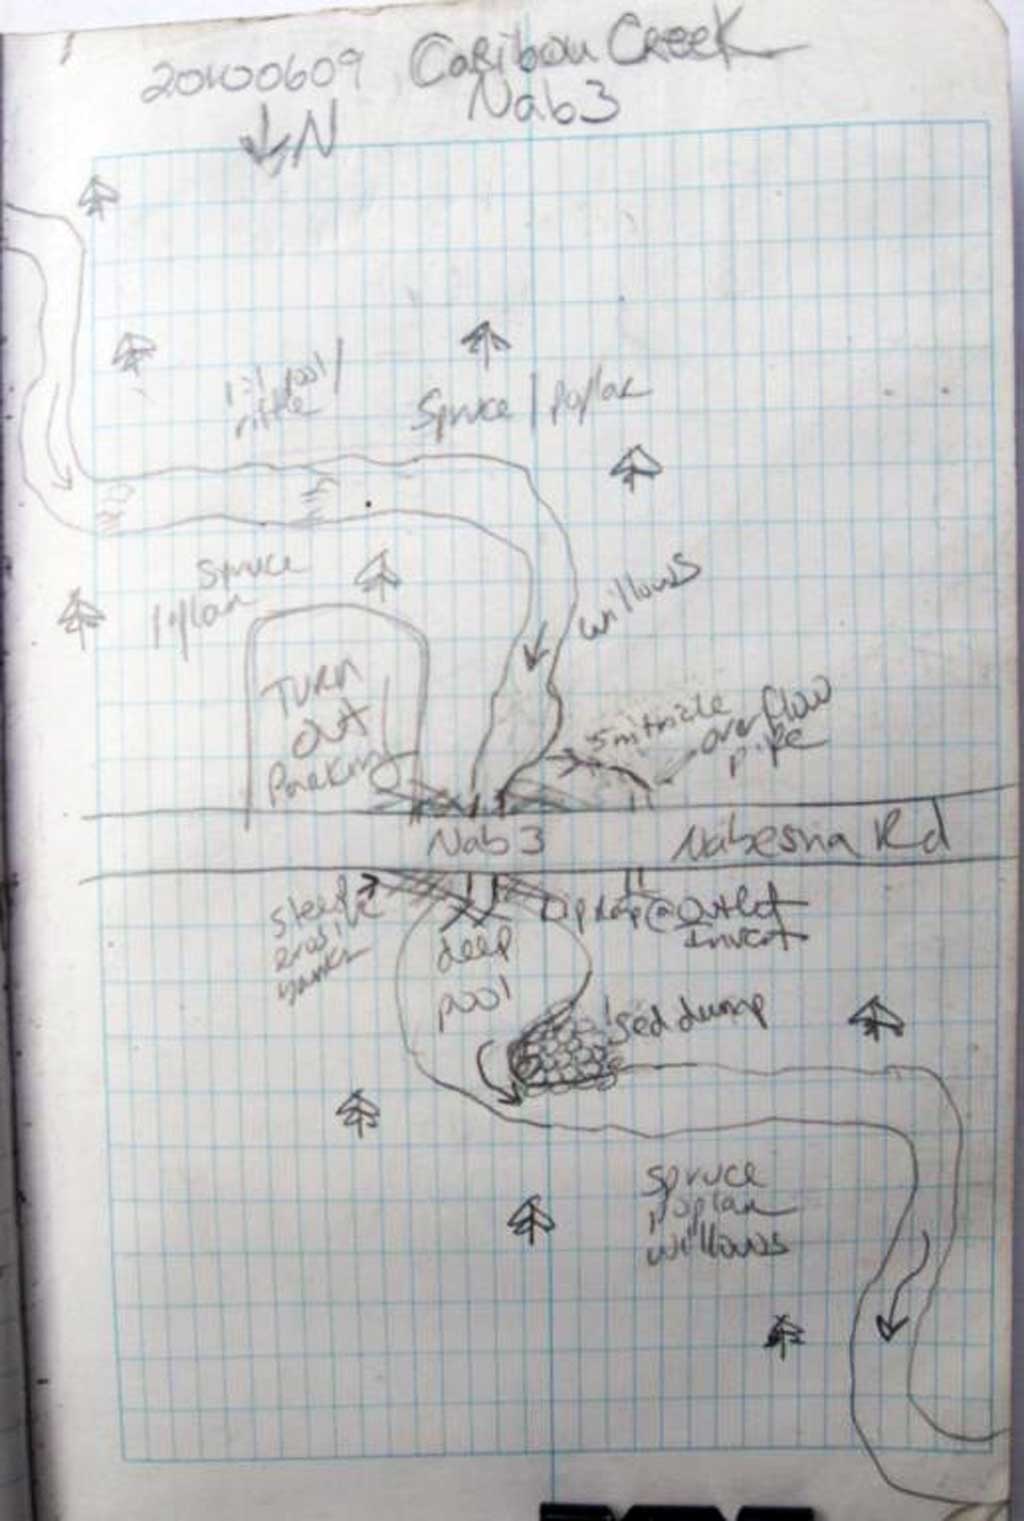 20100609 Caribou Creek
Nab3
↓N
1:1 pool/
riffle
Spruce/poplar
Spruce
/poplar
willows
TURN
OUT
Parking
overflow
pipe
Nab3
Nabesna Rd
steep
erosive
banks
riprap@Outlet
Invert
deep
pool
sed dump
spruce
poplar
willows